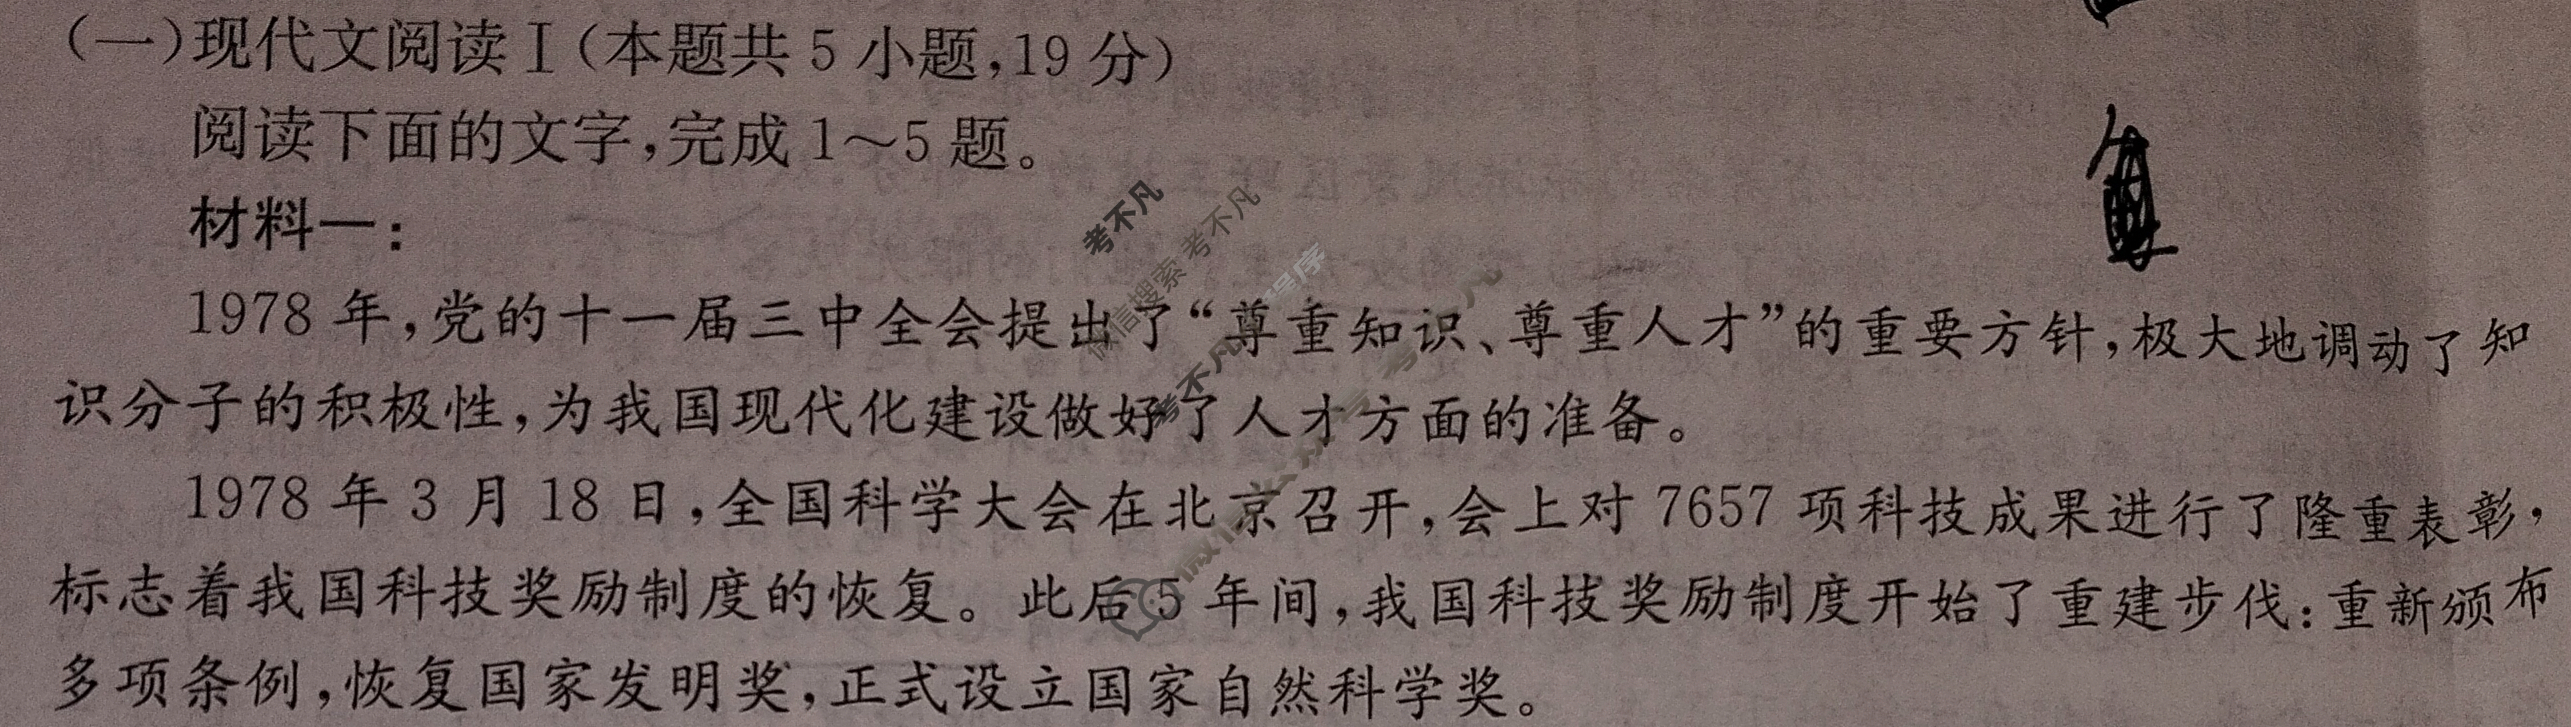 (一)现代文阅读Ⅰ(本题共5小题,19分)
阅读下面的文字,完成1～5题。
材料一:
1978年,党的十一届三中全会提出了“尊重知识、尊重人才”的重要方针,极大地调动了知
识分子的积极性,为我国现代化建设做好了人才方面的准备。
1978年3月18日,全国科学大会在北京召开,会上对7657项科技成果进行了隆重表彰,
标志着我国科技奖励制度的恢复。此后5年间,我国科技奖励制度开始了重建步伐:重新颁布
多项条例,恢复国家发明奖,正式设立国家自然科学奖。
考不凡
微信搜索 考不凡
考不凡